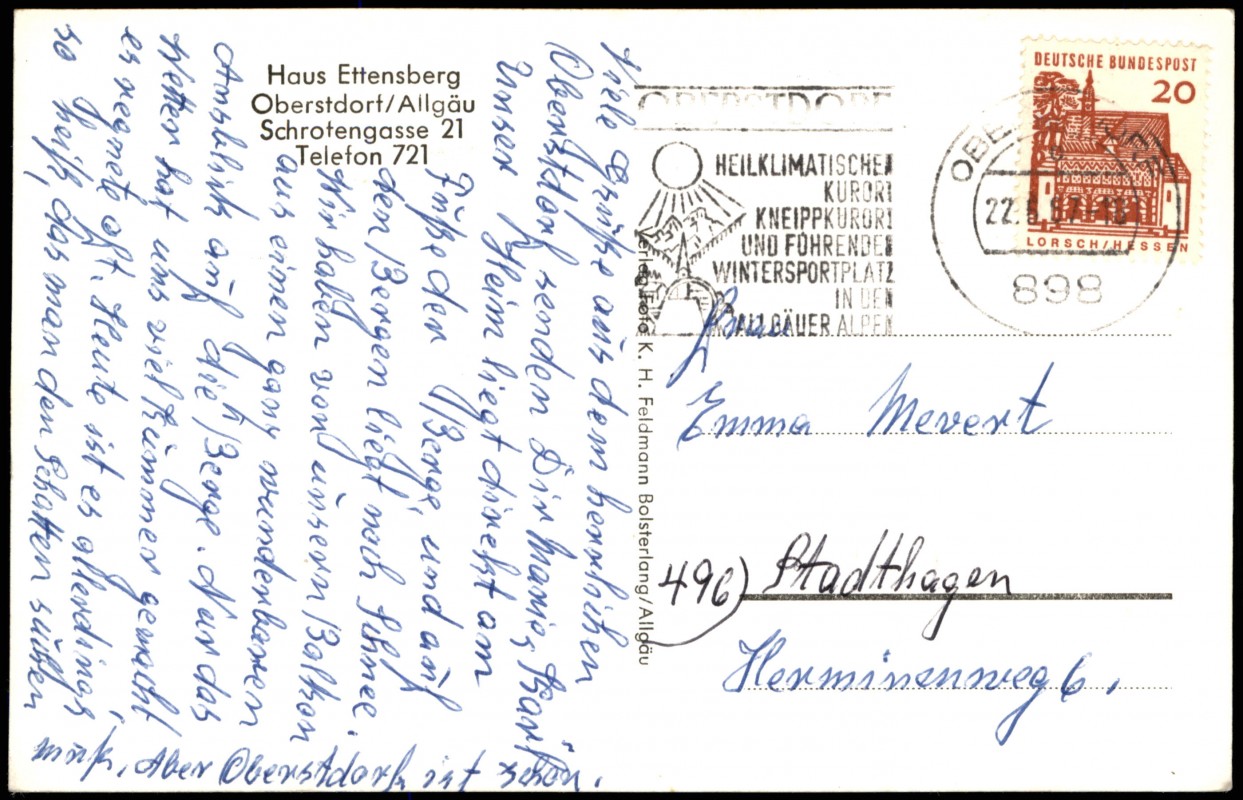 Haus Ettensberg
Oberstdorf/Allgäu
Schrotengasse 21
Telefon 721
Viele Grüße aus dem herrlichen
Oberstdorf senden Dir Hanni,
Unser Heim liegt direkt am
Fuße der Berge und auf
den Bergen liegt noch Schnee.
Wir haben von unserm Balkon
aus einen ganz wunderbaren
Ausblick auf die Berge. Nur das
Wetter hat uns viel Kummer gemacht,
es regnet oft. Heute ist es allerdings
so heiß, das man den Schatten suchen
muß. Aber Oberstdorf ist schön.
Verlag Foto K. H. Feldmann Bolsterlang/Allgäu
OBERSTDORF
HEILKLIMATISCHER
KURORT
KNEIPPKURORT
UND FÜHRENDER
WINTERSPORTPLATZ
IN DEN
ALLGÄUER ALPEN
898
DEUTSCHE BUNDESPOST
20
LORSCH/HESSEN
Frau
Emma Mevert
496) Stadthagen
Herminenweg 6.